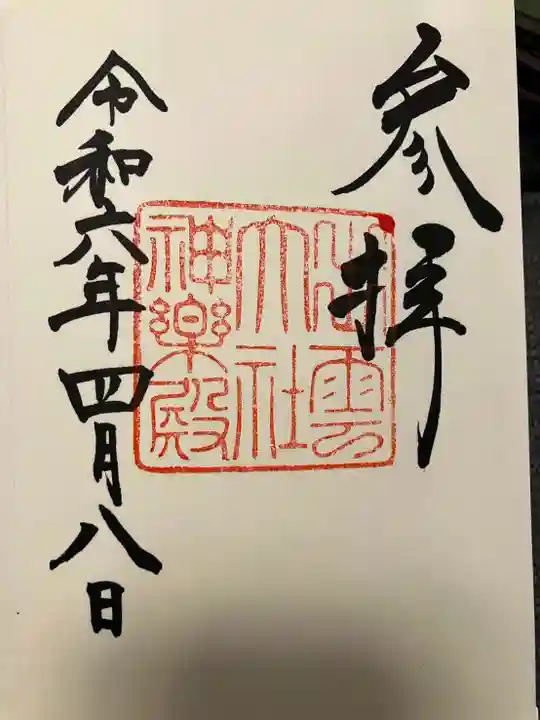 参拝
出雲
大社
神楽殿
令和六年四月八日